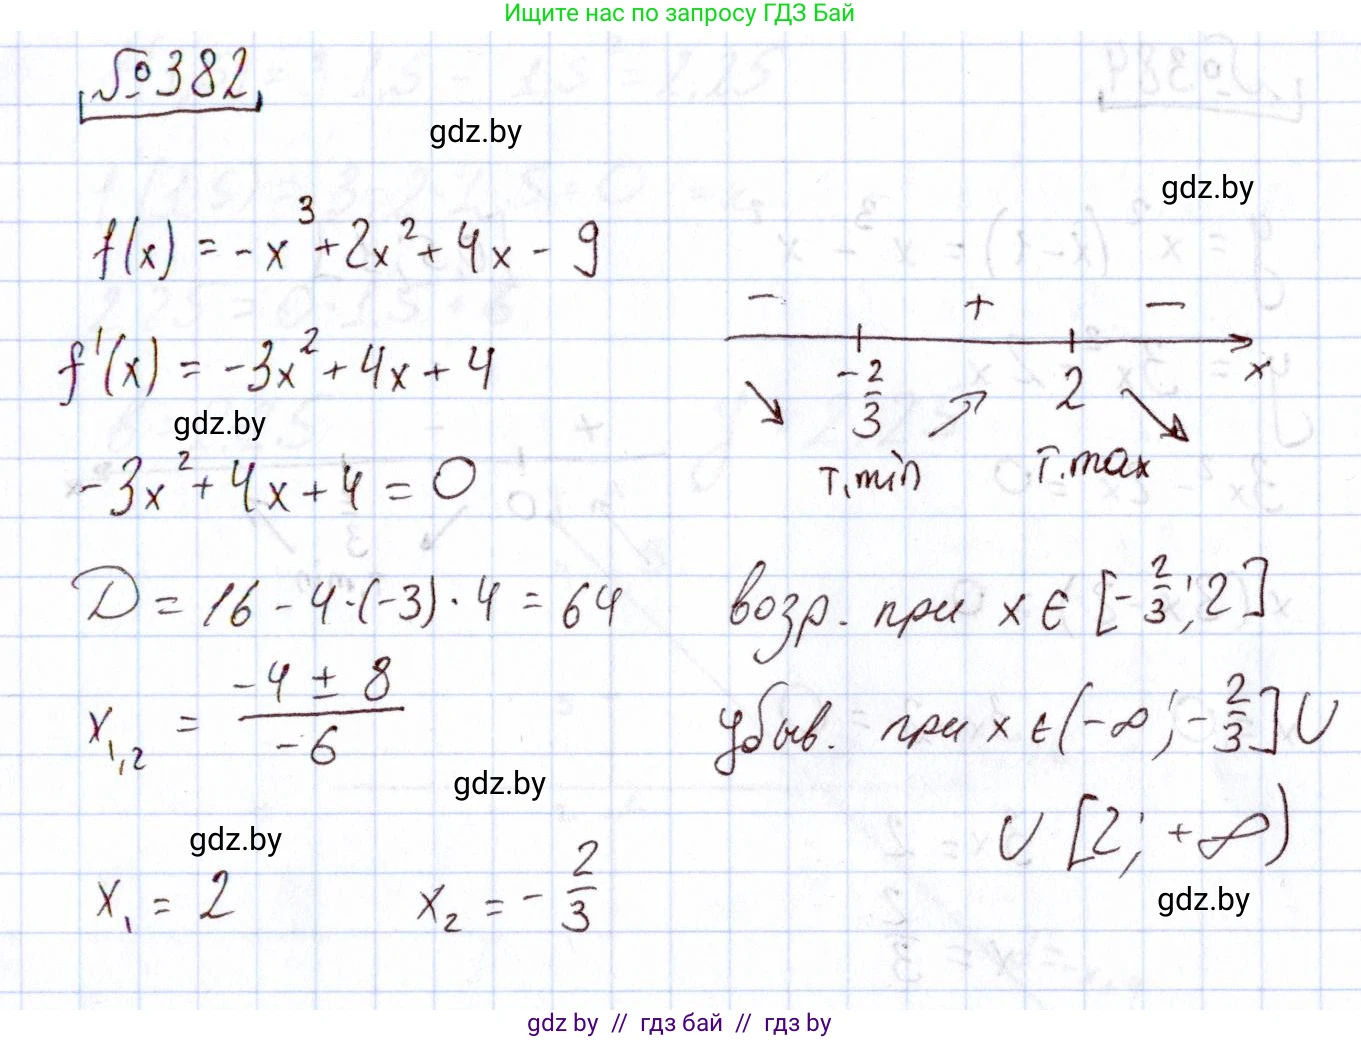 Ищите нас по запросу ГДЗ Бай
№382
gdz.by
gdz.by
f(x) = -x³ + 2x² + 4x - 9
f'(x) = -3x² + 4x + 4
gdz.by
-3x² + 4x + 4 = 0
D = 16 - 4·(-3)·4 = 64
x₁,₂ = (-4 ± 8)/(-6)
gdz.by
gdz.by
x₁ = 2 x₂ = -2/3
- + -
-2/3 2 x
т.min т.max
возр. при x ∈ [-2/3; 2]
убыв. при x ∈ (-∞; -2/3] ∪
∪ [2; +∞)
gdz.by
gdz by // гдз бай // гдз by